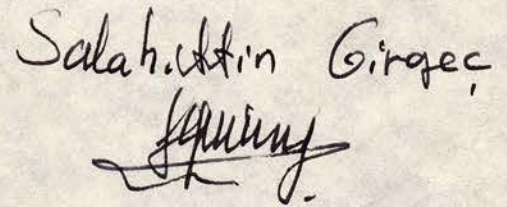 Salahittin Girgeç